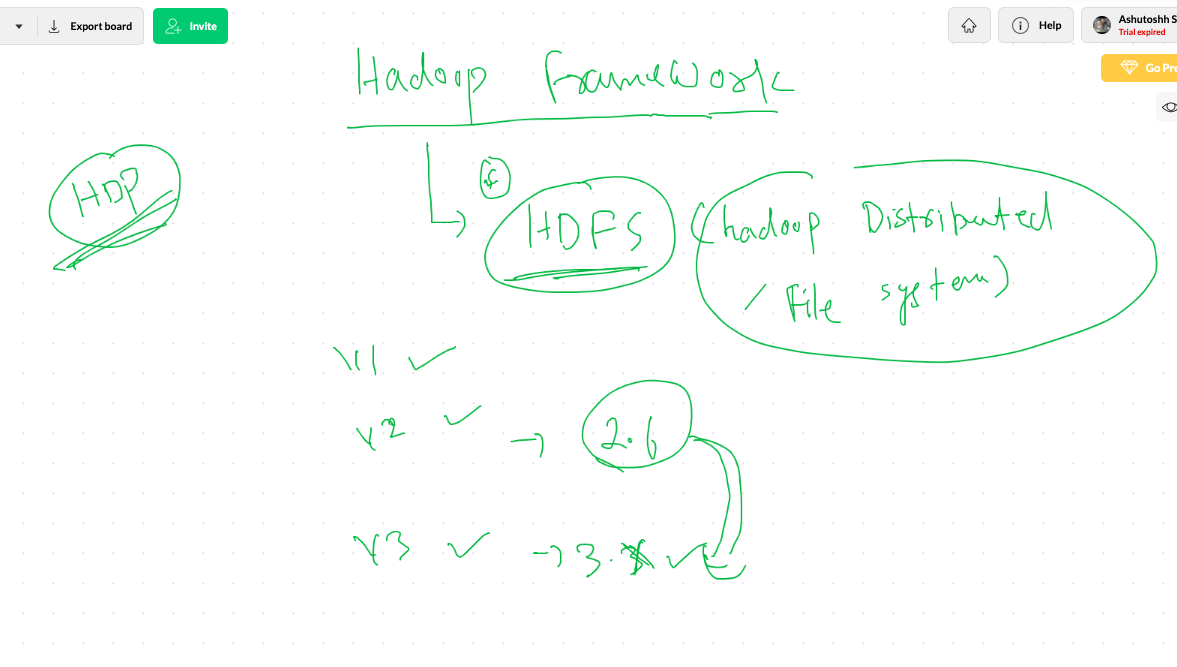 Export board
Invite
Help
Ashutoshh S
Trial expired
Go Pre
Hadoop FrameWork
HDP
HDFS (hadoop Distributed
File system)
V1 ✓
V2 ✓ → 2.6
V3 ✓ → 3. ✓